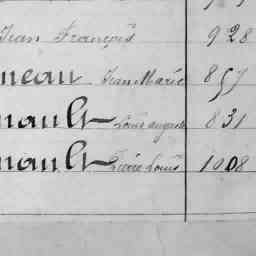 Jean François 928
neau Jean Marie 857
nault Louis auguste 831
nault Pierre Louis 1008